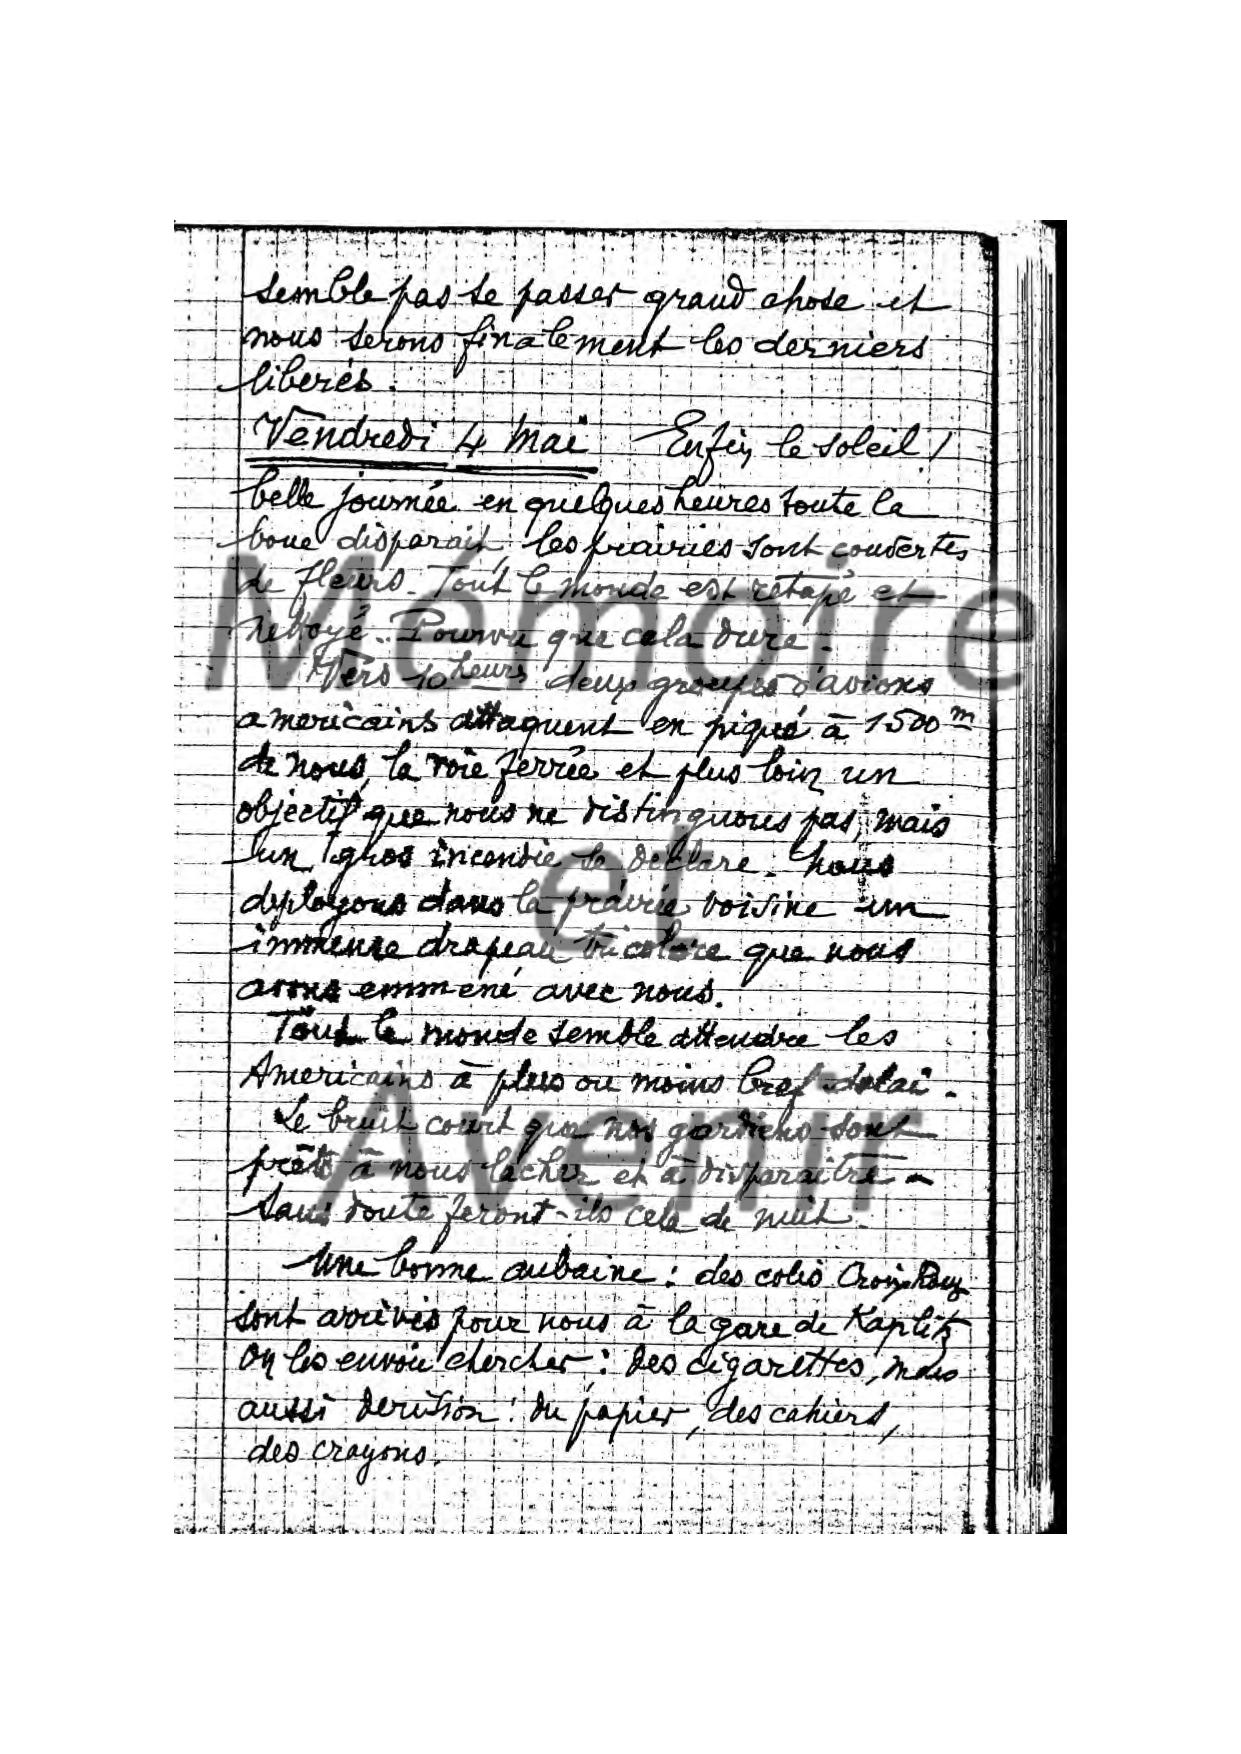 semble pas se passer grand chose et
nous serons finalement les derniers
liberés.
Vendredi 4 Mai Enfin le soleil !
belle journée en quelques heures toute la
boue disparait, les prairies sont couvertes
de fleurs. Tout le monde est retapé et
nettoyé.. Pourvu que cela dure.
Vers 10 heures deux groupes d'avions
americains attaquent en piqué à 1500 m
de nous, la voie ferrée et plus loin un
objectif que nous ne distinguons pas, mais
un gros incendie se déclare. Nous
deployons dans la prairie voisine un
immense drapeau tricolore que nous
avons emmené avec nous.
Tout le monde semble attendre les
Americains à plus ou moins bref delai.
Le bruit court que nos gardiens sont
prêts à nous lâcher et à disparaitre -
Sans doute feront-ils cela de nuit.
Une bonne aubaine : des colis Croix Rouge
sont arrivés pour nous à la gare de Kaplitz
On les envoie chercher : des cigarettes, mais
aussi derision : du papier, des cahiers,
des crayons.
Mémoire
et
Avenir